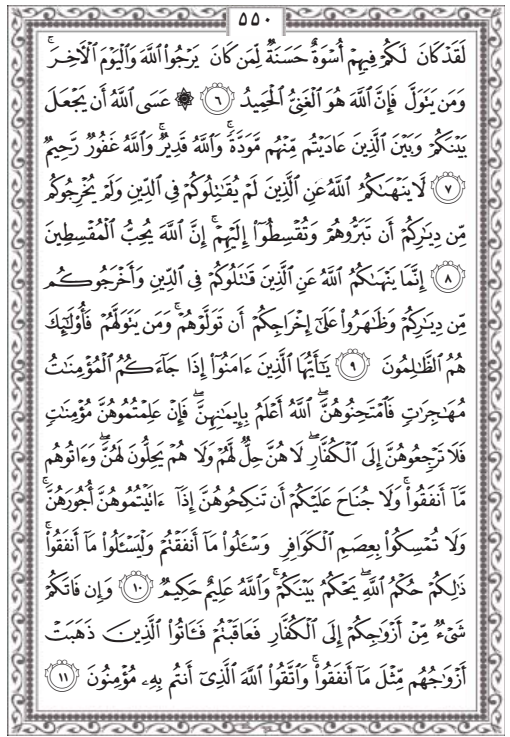 ٥٥٠
لَقَدْ كَانَ لَكُمْ فِيهِمْ أُسْوَةٌ حَسَنَةٌ لِّمَن كَانَ يَرْجُوا۟ ٱللَّهَ وَٱلْيَوْمَ ٱلْـَٔاخِرَ ۚ
وَمَن يَتَوَلَّ فَإِنَّ ٱللَّهَ هُوَ ٱلْغَنِىُّ ٱلْحَمِيدُ ٦ ۞ عَسَى ٱللَّهُ أَن يَجْعَلَ
بَيْنَكُمْ وَبَيْنَ ٱلَّذِينَ عَادَيْتُم مِّنْهُم مَّوَدَّةً ۚ وَٱللَّهُ قَدِيرٌ ۚ وَٱللَّهُ غَفُورٌ رَّحِيمٌ
٧ لَّا يَنْهَىٰكُمُ ٱللَّهُ عَنِ ٱلَّذِينَ لَمْ يُقَـٰتِلُوكُمْ فِى ٱلدِّينِ وَلَمْ يُخْرِجُوكُم
مِّن دِيَـٰرِكُمْ أَن تَبَرُّوهُمْ وَتُقْسِطُوٓا۟ إِلَيْهِمْ ۚ إِنَّ ٱللَّهَ يُحِبُّ ٱلْمُقْسِطِينَ
٨ إِنَّمَا يَنْهَىٰكُمُ ٱللَّهُ عَنِ ٱلَّذِينَ قَـٰتَلُوكُمْ فِى ٱلدِّينِ وَأَخْرَجُوكُم
مِّن دِيَـٰرِكُمْ وَظَـٰهَرُوا۟ عَلَىٰٓ إِخْرَاجِكُمْ أَن تَوَلَّوْهُمْ ۚ وَمَن يَتَوَلَّهُمْ فَأُو۟لَـٰٓئِكَ
هُمُ ٱلظَّـٰلِمُونَ ٩ يَـٰٓأَيُّهَا ٱلَّذِينَ ءَامَنُوٓا۟ إِذَا جَآءَكُمُ ٱلْمُؤْمِنَـٰتُ
مُهَـٰجِرَٰتٍ فَٱمْتَحِنُوهُنَّ ۖ ٱللَّهُ أَعْلَمُ بِإِيمَـٰنِهِنَّ ۖ فَإِنْ عَلِمْتُمُوهُنَّ مُؤْمِنَـٰتٍ
فَلَا تَرْجِعُوهُنَّ إِلَى ٱلْكُفَّارِ ۖ لَا هُنَّ حِلٌّ لَّهُمْ وَلَا هُمْ يَحِلُّونَ لَهُنَّ ۖ وَءَاتُوهُم
مَّآ أَنفَقُوا۟ ۚ وَلَا جُنَاحَ عَلَيْكُمْ أَن تَنكِحُوهُنَّ إِذَآ ءَاتَيْتُمُوهُنَّ أُجُورَهُنَّ ۚ
وَلَا تُمْسِكُوا۟ بِعِصَمِ ٱلْكَوَافِرِ وَسْـَٔلُوا۟ مَآ أَنفَقْتُمْ وَلْيَسْـَٔلُوا۟ مَآ أَنفَقُوا۟ ۚ
ذَٰلِكُمْ حُكْمُ ٱللَّهِ ۖ يَحْكُمُ بَيْنَكُمْ ۚ وَٱللَّهُ عَلِيمٌ حَكِيمٌ ١٠ وَإِن فَاتَكُمْ
شَىْءٌ مِّنْ أَزْوَٰجِكُمْ إِلَى ٱلْكُفَّارِ فَعَاقَبْتُمْ فَـَٔاتُوا۟ ٱلَّذِينَ ذَهَبَتْ
أَزْوَٰجُهُم مِّثْلَ مَآ أَنفَقُوا۟ ۚ وَٱتَّقُوا۟ ٱللَّهَ ٱلَّذِىٓ أَنتُم بِهِۦ مُؤْمِنُونَ ١١